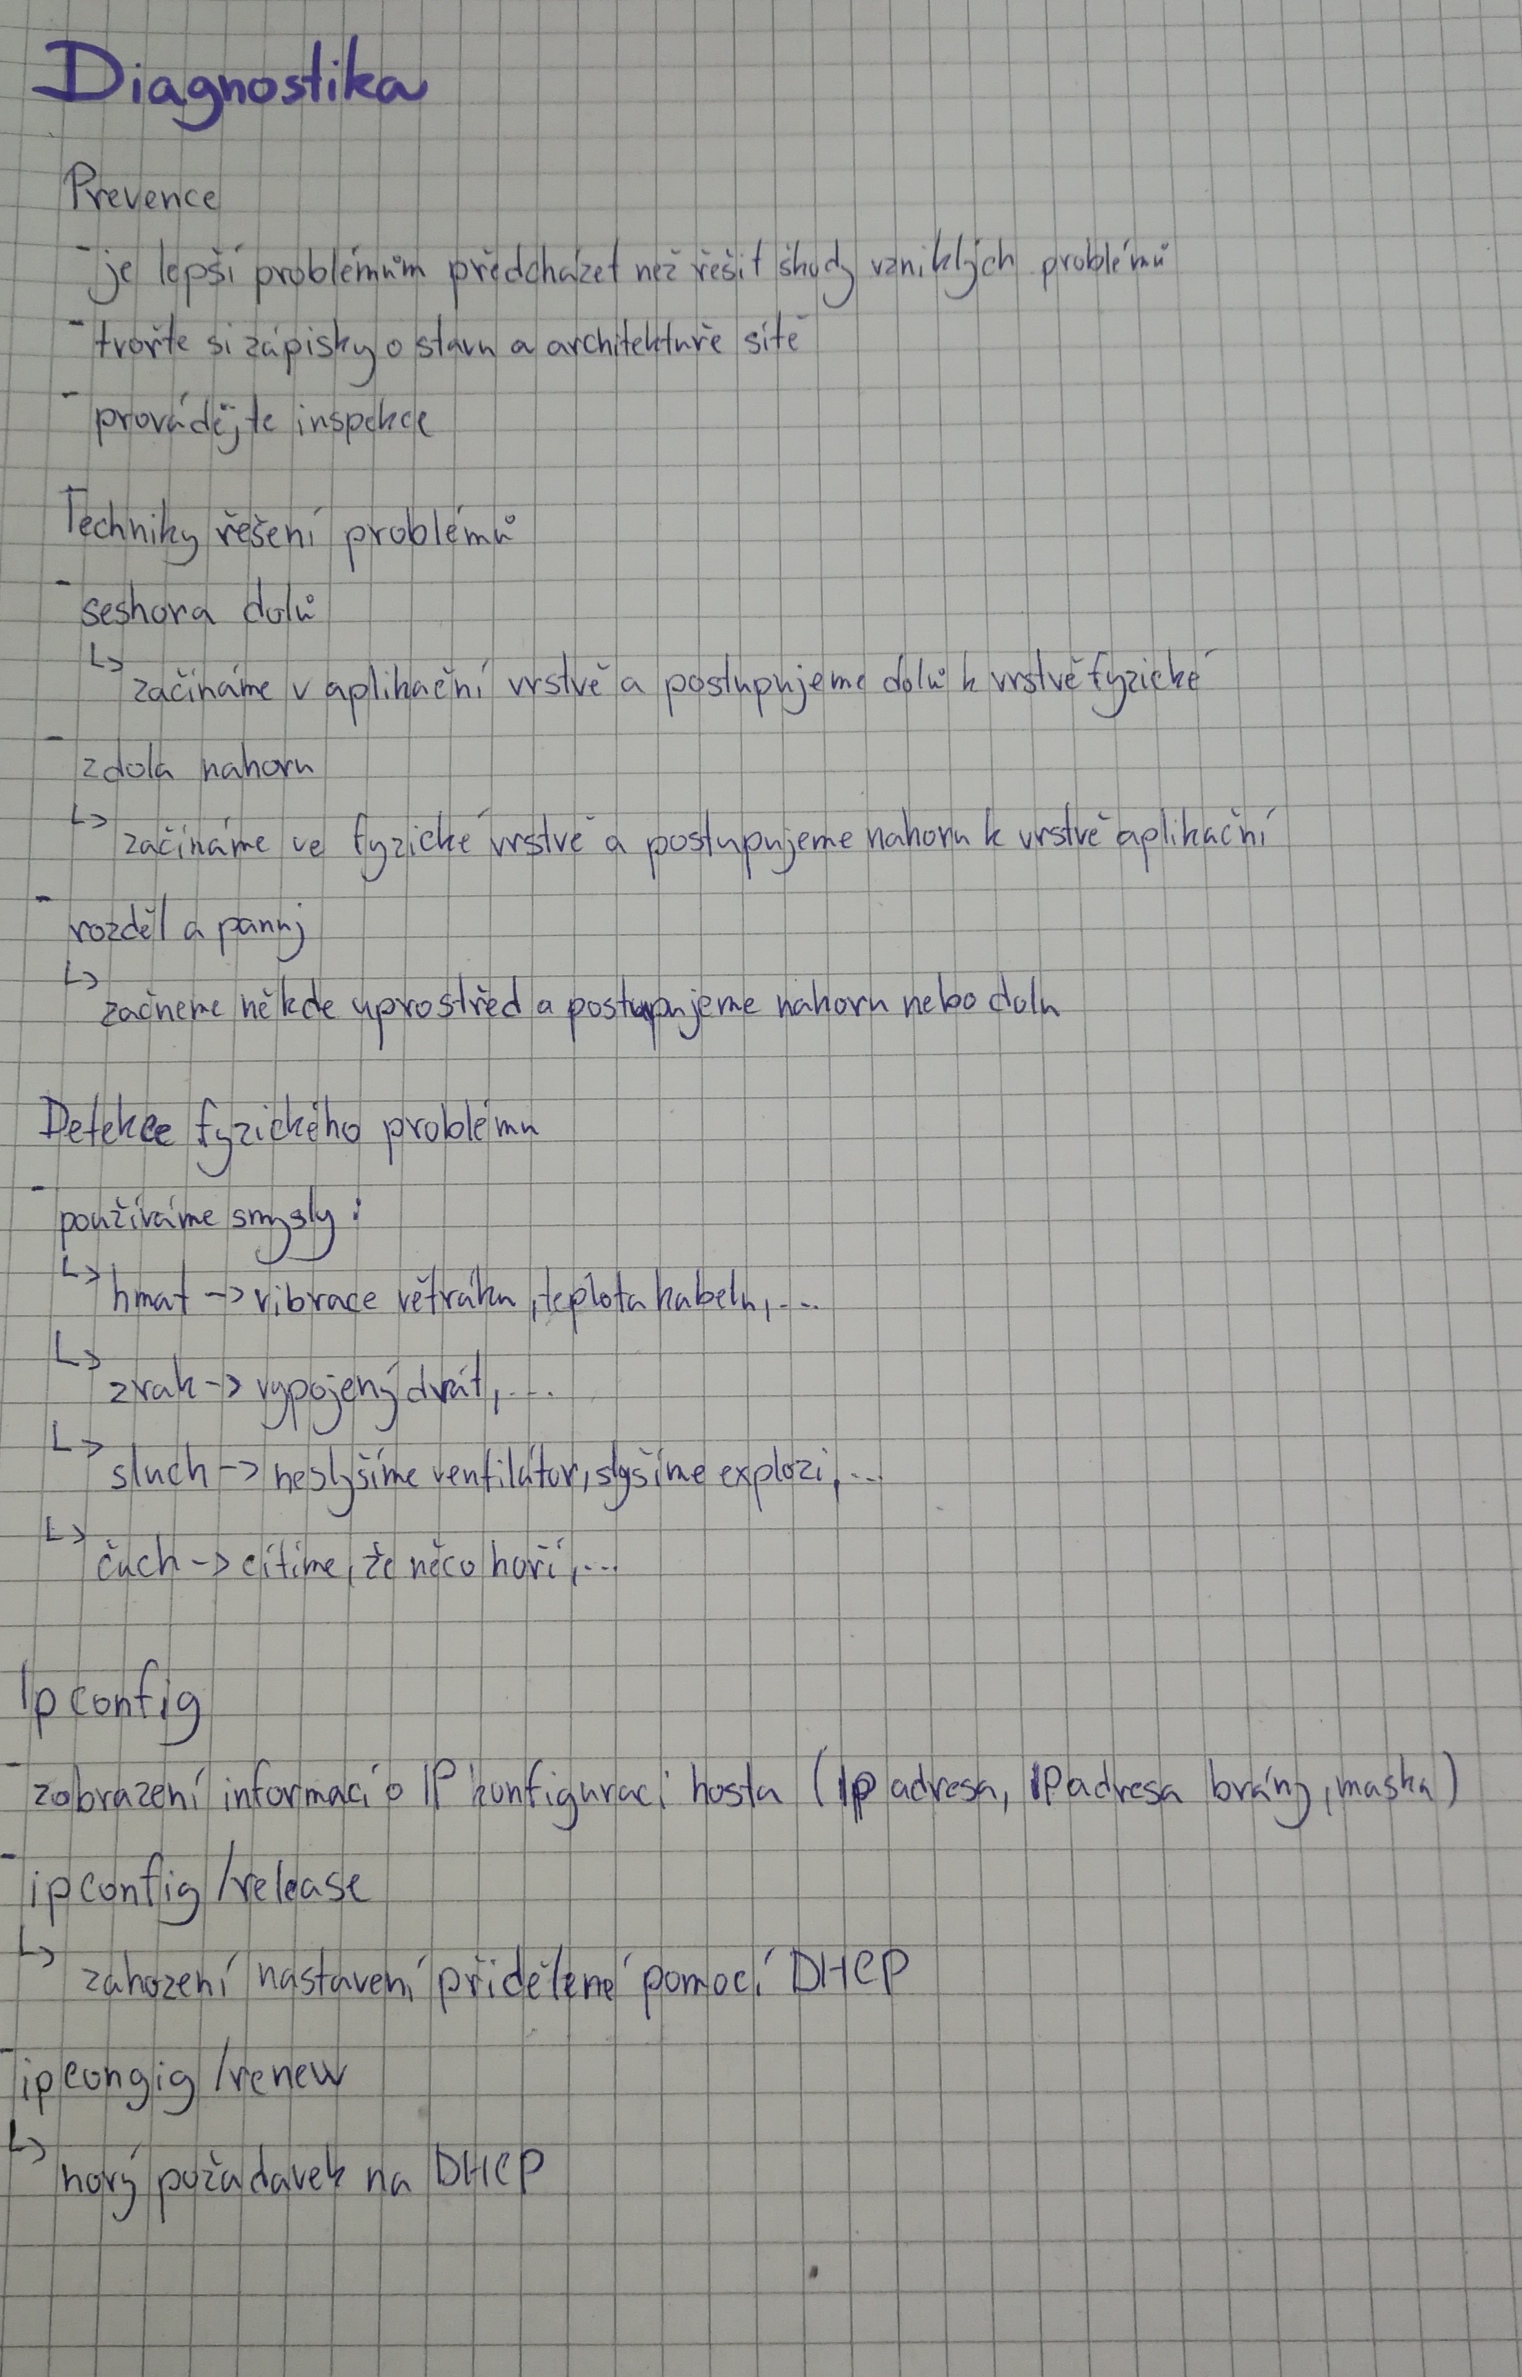 Diagnostika
Prevence
- je lepší problémům předcházet než řešit škody vzniklých problémů
- tvořte si zápisky o stavu a architektuře sítě
- provádějte inspekce
Techniky řešení problémů
- seshora dolů
↳ začínáme v aplikační vrstvě a postupujeme dolů k vrstvě fyzické
- zdola nahoru
↳ začínáme ve fyzické vrstvě a postupujeme nahoru k vrstvě aplikační
- rozděl a panuj
↳ začneme někde uprostřed a postupujeme nahoru nebo dolu
Detekce fyzického problému
- používáme smysly:
↳ hmat -> vibrace větráku, teplota kabelu, ...
↳ zrak -> vypojený drát, ...
↳ sluch -> neslyšíme ventilátor, slyšíme explozi, ...
↳ čuch -> cítíme, že něco hoří, ...
Ipconfig
- zobrazení informací o IP konfiguraci hosta (Ip adresa, IP adresa brány, maska)
- ipconfig /release
↳ zahození nastavení přidělené pomocí DHCP
- ipcongig /renew
↳ nový požadavek na DHCP